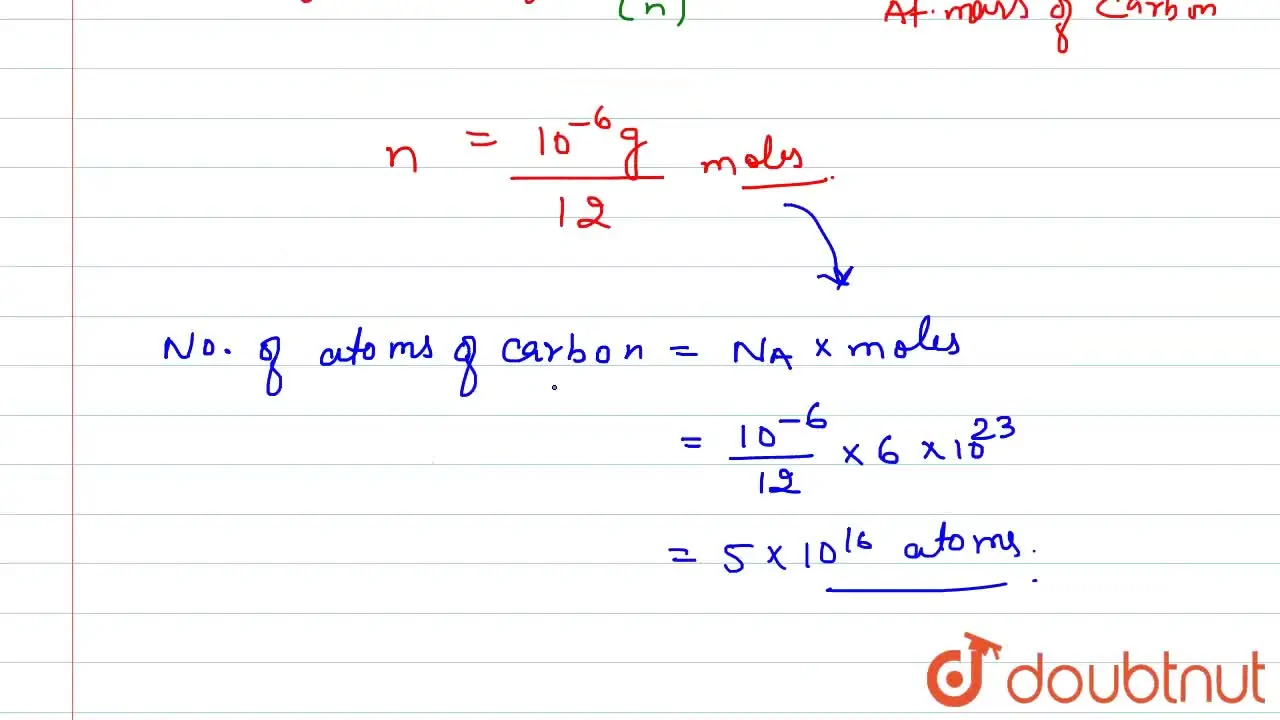 (n) At. mass of Carbon
n = 10⁻⁶g / 12 moles
No. of atoms of carbon = NA × moles
= 10⁻⁶ / 12 × 6 × 10²³
= 5 × 10¹⁶ atoms.
doubtnut